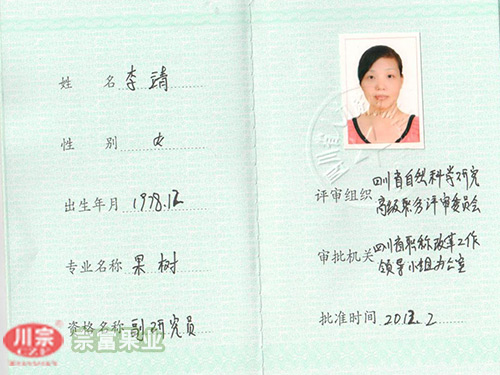 姓名 李靖
性别 女
出生年月 1978.12
专业名称 果树
资格名称 副研究员
评审组织 四川省自然科学研究
高级职务评审委员会
审批机关 四川省职称改革工作
领导小组办公室
批准时间 2012.2
川宗
宗富果业